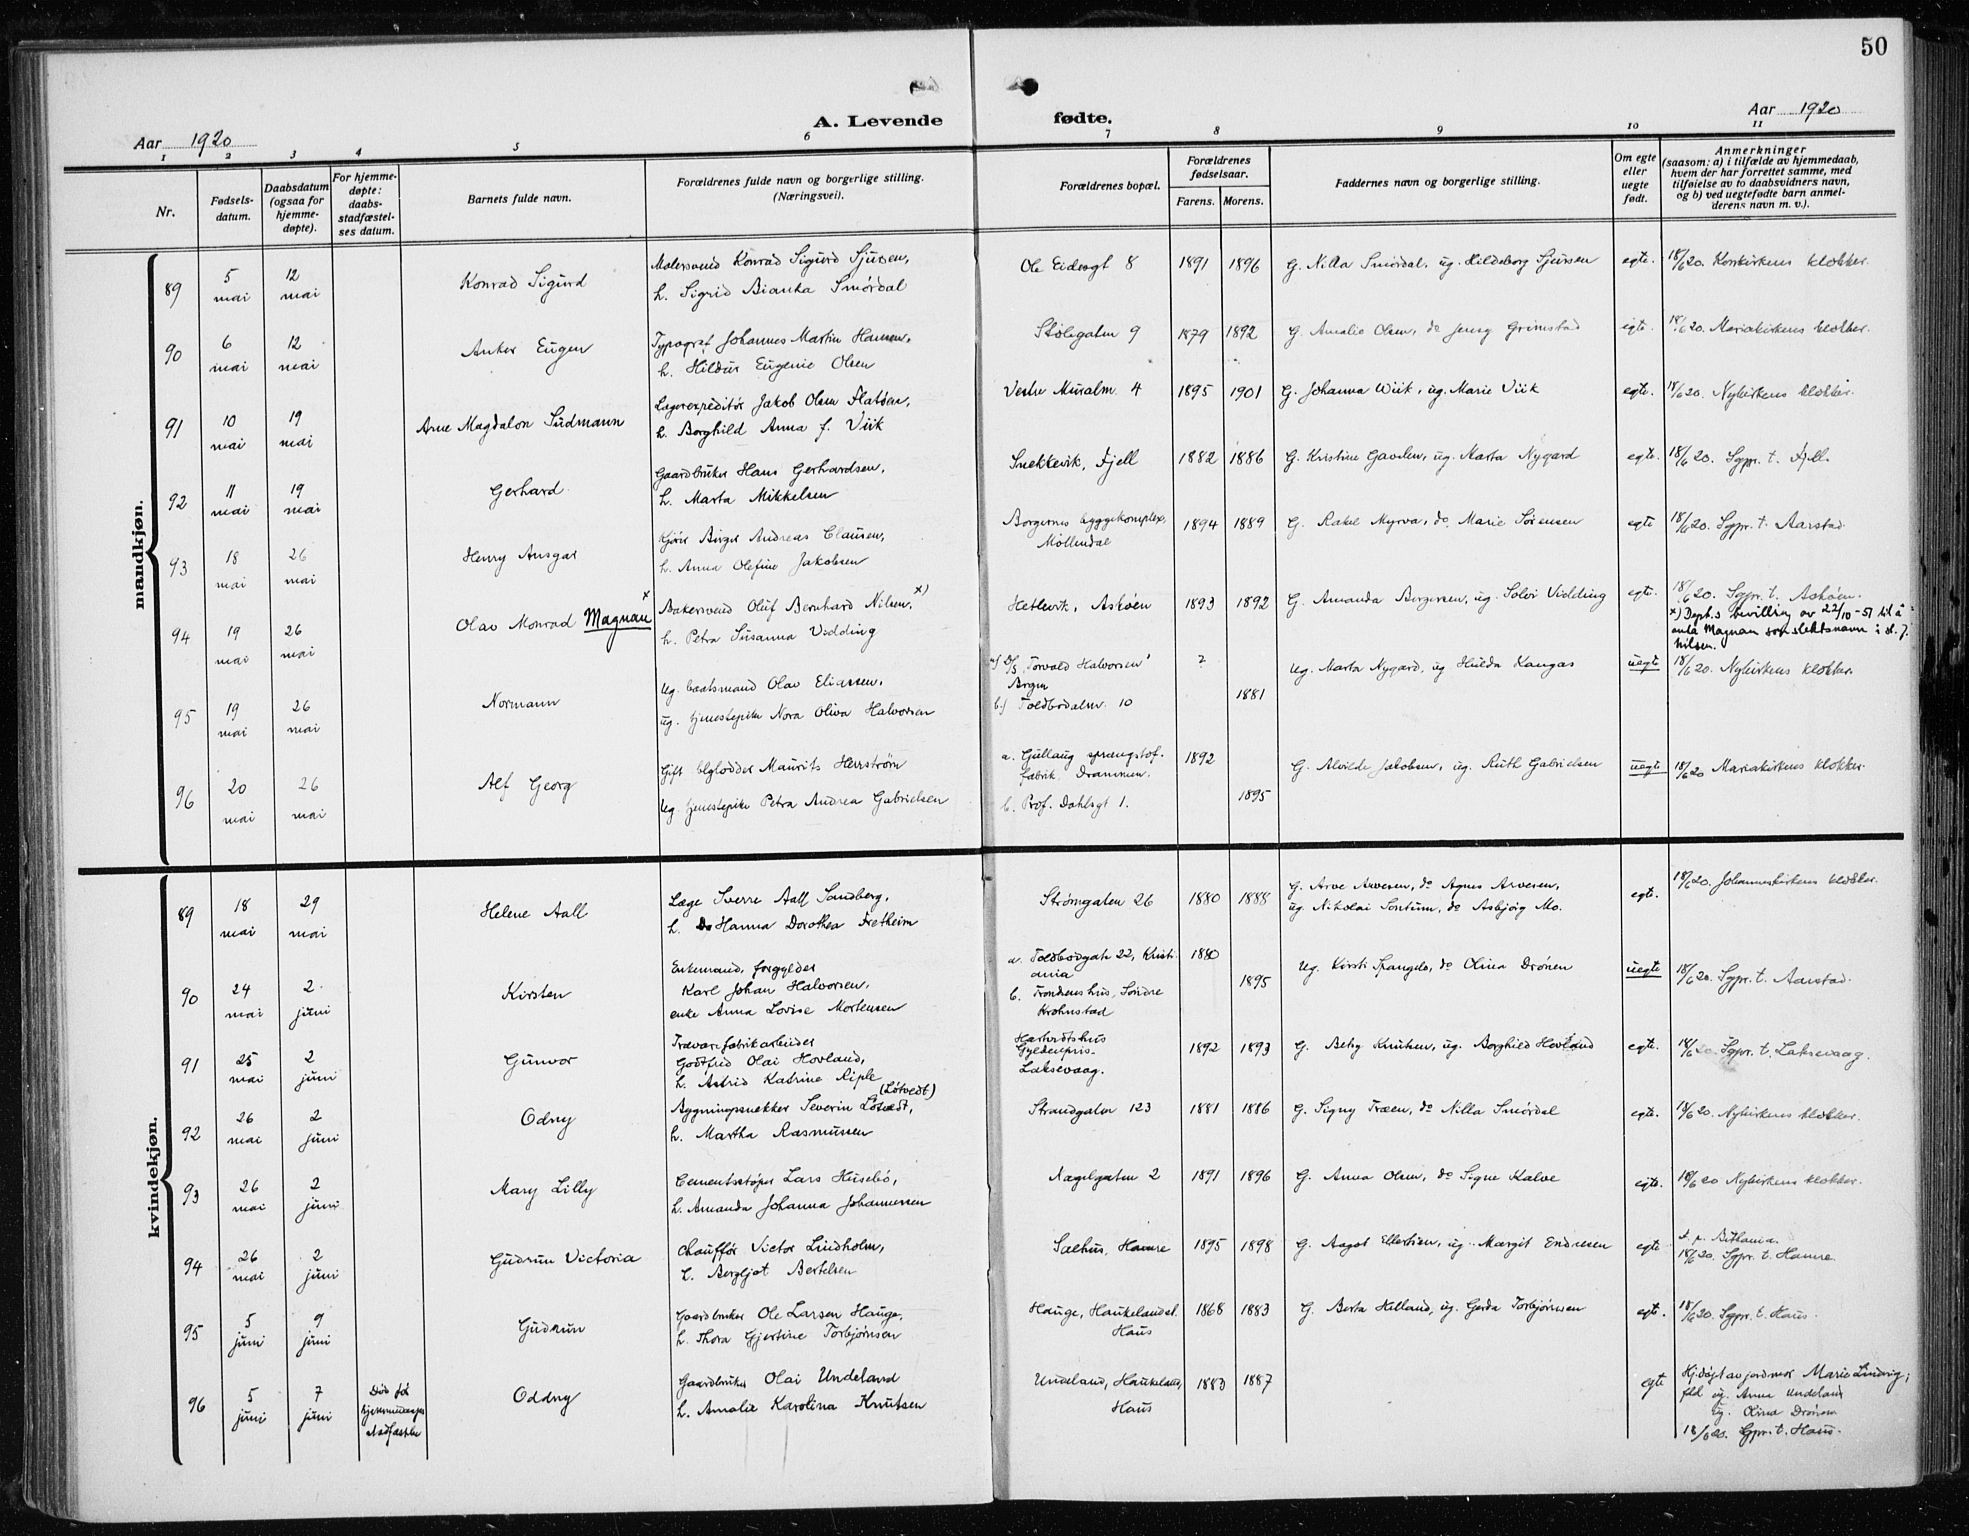 50
Aar 1920
A. Levende
fødte.
Aar 1920
1 2 3 4 5 6 7 8 9 10 11
Nr.
Fødsels-
datum.
Daabsdatum
(ogsaa for
hjemme-
døpte).
For hjemme-
døpte:
daabs-
stadfæstel-
ses datum.
Barnets fulde navn.
Forældrenes fulde navn og borgerlige stilling.
(Næringsvei).
Forældrenes bopæl.
Forældrenes
fødselsaar.
Farens. Morens.
Faddernes navn og borgerlige stilling.
Om egte
eller
uegte
født.
Anmerkninger
(saasom: a) i tilfælde av hjemmedaab,
hvem der har forrettet samme, med
tilføielse av to daabsvidners navn,
og b) ved uegtefødte barn anmel-
derens navn m. v.).
mandkjøn.
89
5
mai
12
mai
Konrad Sigurd
Malersvend Konrad Sigurd Sjursen,
h. Sigrid Bianka Smørdal
Ole Eidesgt 8
1891 1896
G. Nilla Smørdal, ug. Hildeborg Sjursen
egte.
18/6 20. Korskirkens klokker.
90
6
mai
12
mai
Anker Eugen
Typograf Johannes Martin Hansen,
h. Hildur Eugenie Olsen
Stølegaten 9
1879 1892
G. Amalie Olsen, do Jenny Grimstad
egte.
18/6 20. Mariakirkens klokker.
91
10
mai
19
mai
Arne Magdalon Sudmann
Lagerexpeditør Jakob Olsen Flatøen,
h. Borghild Anna f. Viik
Vestre Muralm. 4
1895 1901
G. Johanna Wiik, ug. Marie Viik
egte.
18/6 20. Nykirkens klokker.
92
11
mai
19
mai
Gerhard
Gaardbruker Hans Gerhardsen,
h. Marta Mikkelsen
Snekkevik, Fjell
1882 1886
G. Kristine Gavlen, ug. Marta Nygard
egte.
18/6 20. Sgpr. t. Fjell.
93
18
mai
26
mai
Henry Ansgar
Kjører Birger Andreas Clausen,
h. Anna Olefine Jakobsen
Borgernes byggekomplex,
Møllendal
1894 1889
G. Rakel Myrva, do Marie Sørensen
egte
18/6 20. Sgpr. t. Aarstad.
94
19
mai
26
mai
Olav Monrad Magnau x
Bakersvend Oluf Bernhard Nilsen, x)
h. Petra Susanna Vidding
Hetlevik, Askøen
1893 1892
G. Amanda Borgersen, ug. Solvi Vidding
egte.
18/6 20. Sgpr. t. Askøen.
x) Dept.s bevilling av 22/10-51 til å
anta Magnau som slektsnavn i st. f.
Nilsen.
95
19
mai
26
mai
Normann
Ug. baatsmand Olav Eliassen,
ug. tjenestepike Nora Oliva Halvorsen
a) D/S "Torvald Halvorsen"
Bergen
b) Toldbodalm. 10
?
1881
Ug. Marta Nygard, ug Hulda Kangas
uegte
18/6 20. Nykirkens klokker.
96
20
mai
26
mai
Alf Georg
Gift Maurits Herrstrøm
Ug tjenestepike Petra Andrea Gabrielsen
a. Gullaug sprængstof-
fabrik. Drammen.
b. Prof. Dahlsgt 1.
1892
1895
G. Alvilde Jakobsen, ug. Ruth Gabrielsen
uegte
18/6 20 Mariakirkens klokker.
kvindekjøn.
89
18
mai
29
mai
Helene Aall
Læge Sverre Aall Sandberg,
h. Hanna Dorothea Fretheim
Strømgaten 26
1880 1888
G. Arve Arvesen, do Agnes Arvesen,
ug. Nikolai Sontum, do Asbjøig Mo.
egte.
18/6 20. Johanneskirkens klokker.
90
24
mai
2
juni
Kirsten
Enkemand, forgylder
Karl Johan Halvorsen,
enke Anna Lovise Mortensen
a. Toldbodgate 22, Kristi-
ania
b. Trondsenshus, Søndre
Krohnstad
1880
1895
Ug. Kirsti Spangelo, do Olina Drønen
uegte
18/6 20. Sgpr. t. Aarstad.
91
25
mai
2
juni
Gunvor
Trævarefabrikarbeider
Godtfrid Olai Hovland,
h. Astrid Katrine Riple
Hartvedtshus
Gyldenpris-
Laksevaag.
1892 1893
G. Betsy Knutsen, ug. Borghild Hovland
egte.
18/6 20. Sgpr. t. Laksevaag.
92
26
mai
2
juni
Odny
(Løtvedt)
Bygningssnekker Severin Løtvedt,
h. Martha Rasmussen
Strandgaten 123
1881 1886
G. Signy Træen, do Nilla Smørdal
egte.
18/6 20. Nykirkens klokker.
93
26
mai
2
juni
Mary Lilly
Cementstøper Lars Husebø,
h. Amanda Johanna Johannessen
Nægelgaten 2
1891 1896
G. Anna Olsen, do Signe Kalve
egte.
18/6 20 Nykirkens klokker.
94
26
mai
2
juni
Gudrun Victoria
Chauffør Victor Lindholm,
h. Bergljot Bertelsen
Salhus, Hamre
1895 1898
G. Aagot Ellertsen, ug. Margit Endresen
egte
Bethania.
18/6 20. Sgpr. t. Hamre.
95
5
juni
9
juni
Gudrun
Gaardbruker Ole Larsen Hauge,
h. Thora Gjertine Torbjørnsen
Hauge, Haukelandsd.
Haus
1868 1883
G. Berta Helland, ug. Gerda Torbjørnsen
egte.
18/6 20. Sgpr. t. Haus.
96
5
juni
7
juni
Død før
stadfæstelse
Oddny
Gaardbruker Olai Undeland
h. Amalie Karolina Knutsen
Undeland, Haukeland,
Haus
1883 1887
egte
Hj.døpt av jordmor Marie Lindvig;
ug. Anna Undeland
ug. Olina Drønen
18/6 20. Sgpr. t. Haus.